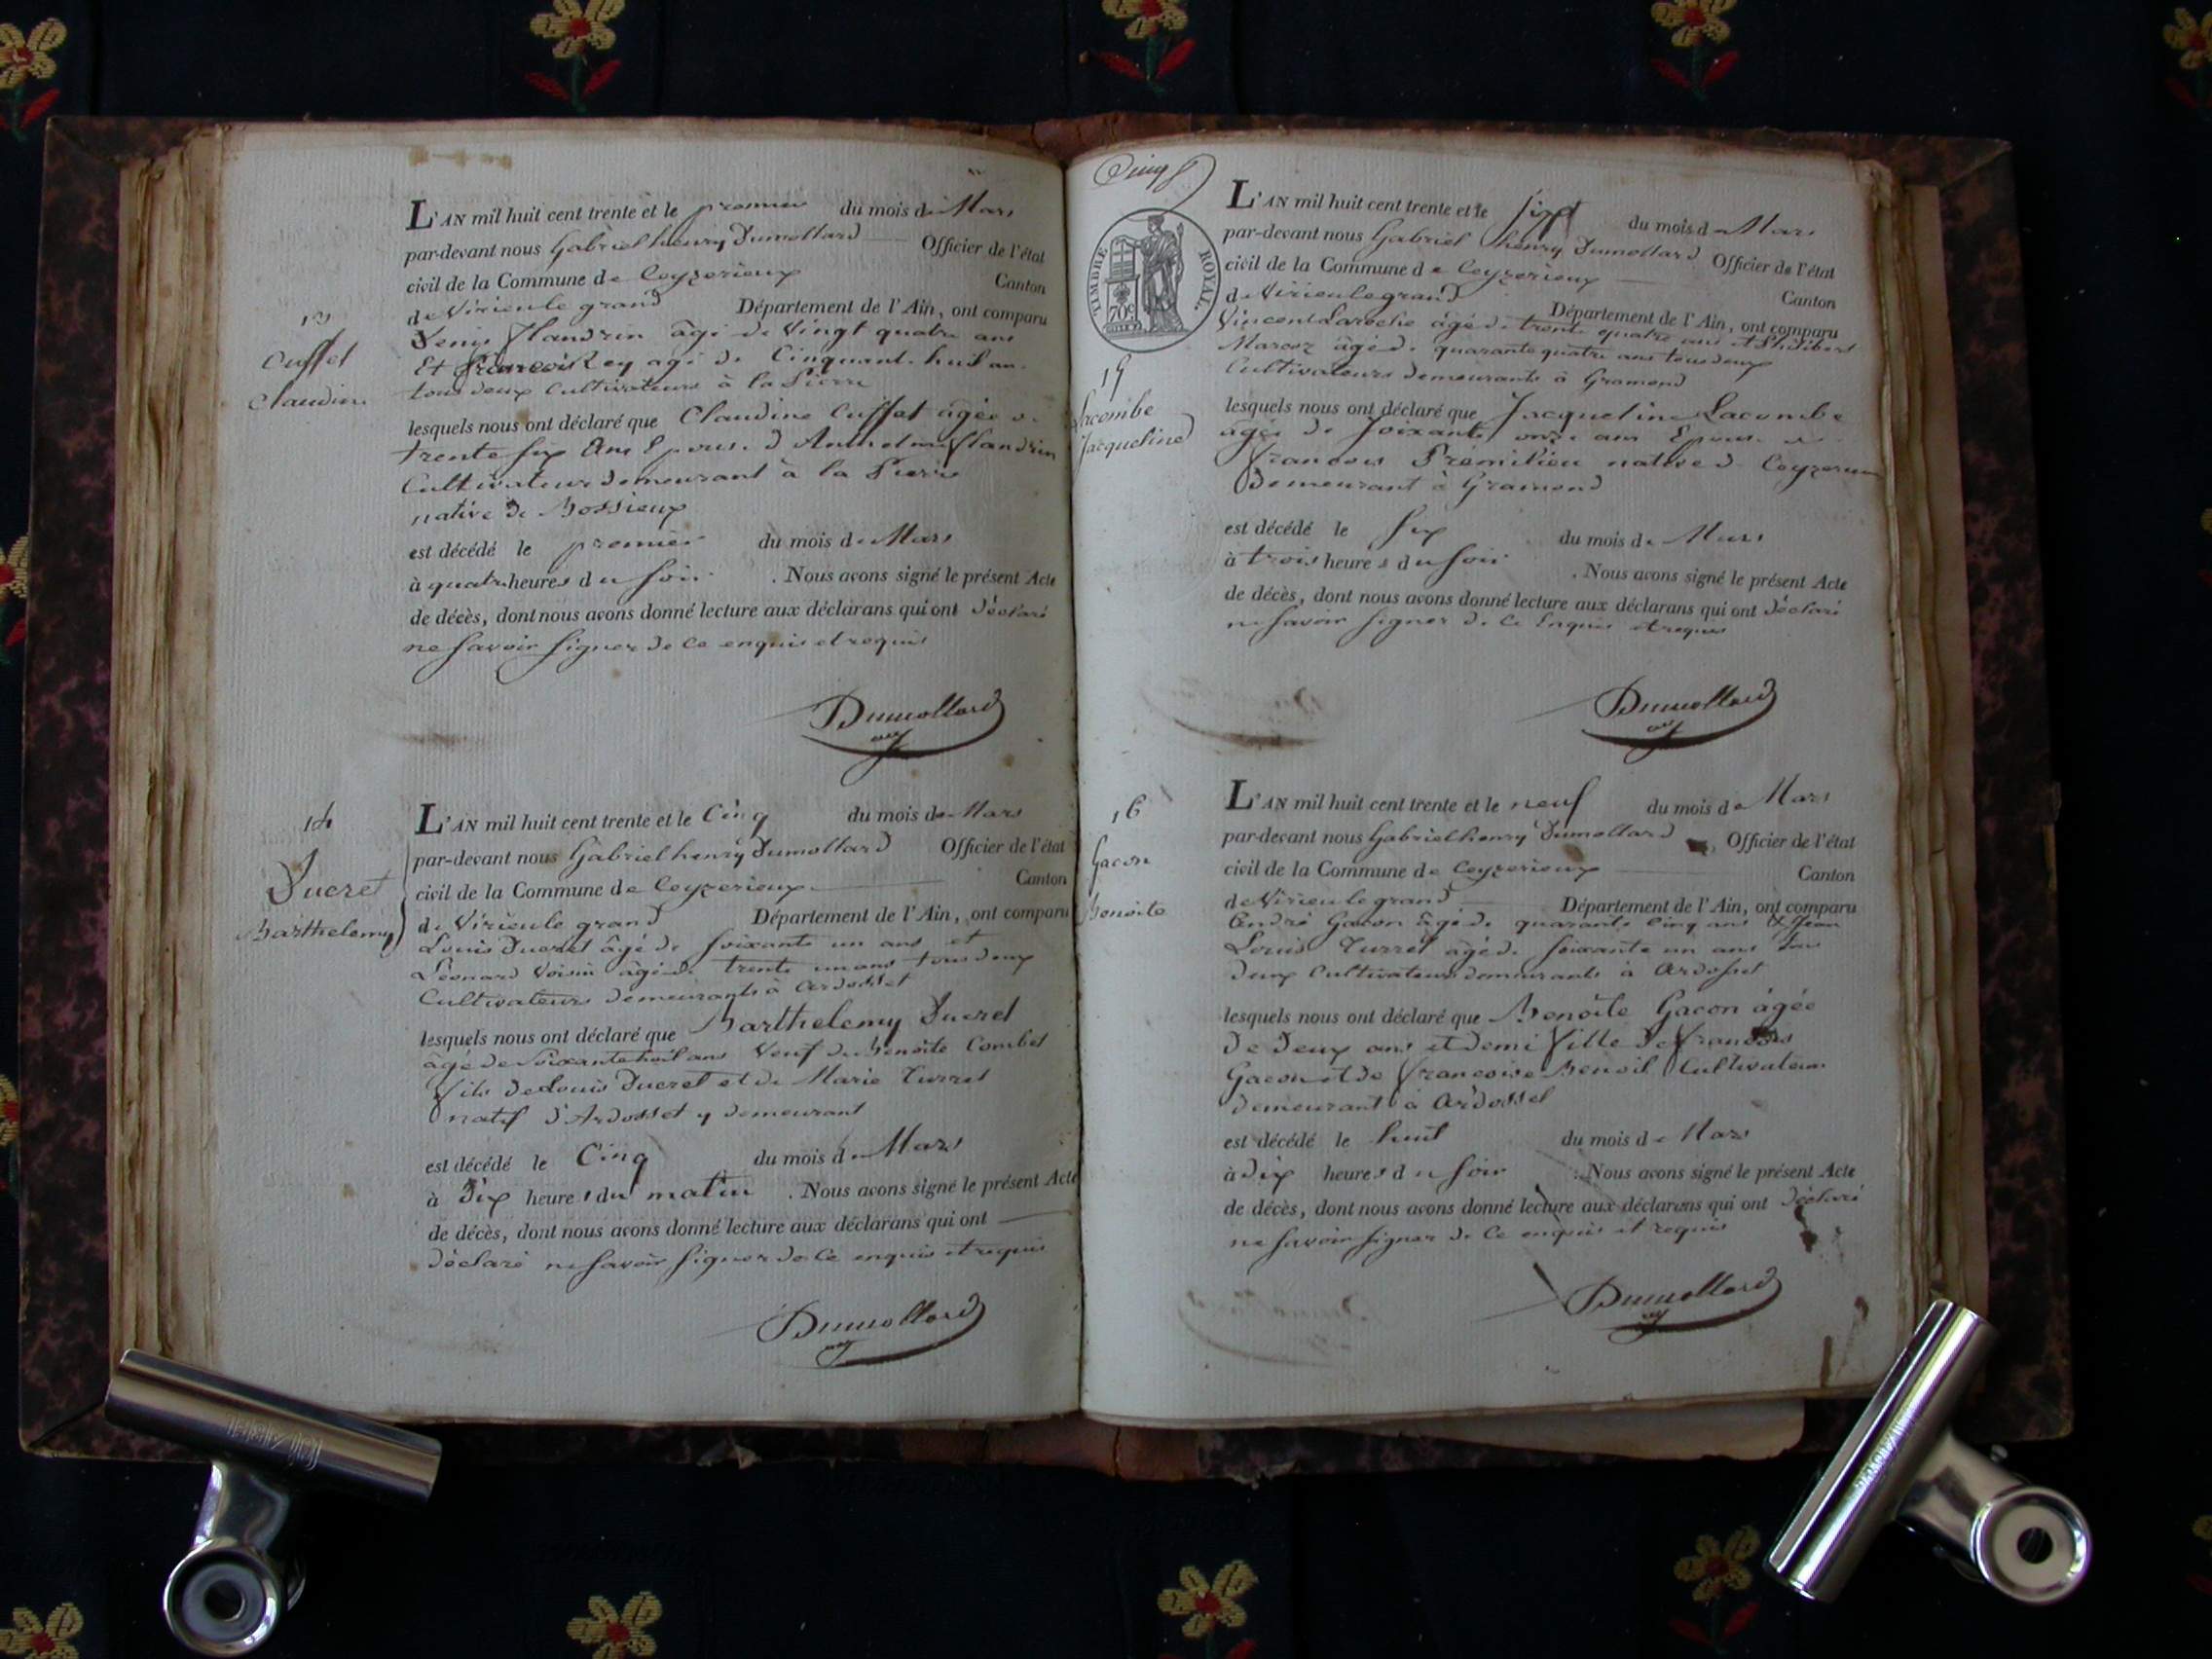 13
Cuffet
Claudine
L'AN mil huit cent trente et le premier du mois de Mars
par-devant nous Gabriel henry Dumollard Officier de l'état
civil de la Commune de Ceyzerieux Canton
de Virieu le grand Département de l'Ain, ont comparu
Denis Flandrin âgé de Vingt quatre ans
Et François Rey agé de Cinquante huit ans
tous deux Cultivateurs à la Pierre
lesquels nous ont déclaré que Claudine Cuffet âgée de
trente six Ans Epouse d'Anthelme Flandrin
Cultivateur demeurant à la Pierre
native de Bossieux
est décédé le premier du mois de Mars
à quatre heures du soir . Nous avons signé le présent Acte
de décès, dont nous avons donné lecture aux déclarans qui ont déclaré
ne savoir signer de ce enquis et requis
Dumollard
14
Ducret
Barthelemy
L'AN mil huit cent trente et le Cinq du mois de Mars
par-devant nous Gabriel henry Dumollard Officier de l'état
civil de la Commune de Ceyzerieux Canton
de Virieu le grand Département de l'Ain, ont comparu
Louis Ducret âgé de soixante un ans et
Léonard Voisin âgé de trente un ans tous deux
Cultivateurs demeurants à Ardosset
lesquels nous ont déclaré que Barthelemy Ducret
âgé de Soixante huit ans Veuf de Benoite Combet
fils de Louis Ducret et de Marie Turrel
natif d'Ardosset y demeurant
est décédé le Cinq du mois de Mars
à Dix heures du matin . Nous avons signé le présent Acte
de décès, dont nous avons donné lecture aux déclarans qui ont
déclaré ne savoir signer de ce enquis et requis
Dumollard
Cinq
TIMBRE ROYAL
70c
15
Lacombe
Jacqueline
L'AN mil huit cent trente et le sept du mois de Mars
par-devant nous Gabriel henry Dumollard Officier de l'état
civil de la Commune de Ceyzerieux Canton
de Virieu le grand Département de l'Ain, ont comparu
Vincent Laroche âgé de trente quatre ans et Philibert
Marcoz âgé de quarante quatre ans tous deux
Cultivateurs demeurants à Gramond
lesquels nous ont déclaré que Jacqueline Lacombe
âgée de soixante onze ans Epouse de
francois Prémilieu native de Ceyzerieux
Demeurant à Gramond
est décédé le six du mois de Mars
à trois heures du soir . Nous avons signé le présent Acte
de décès, dont nous avons donné lecture aux déclarans qui ont déclaré
ne savoir signer de ce Enquis et requis
Dumollard
16
Gacon
Benoite
L'AN mil huit cent trente et le neuf du mois de Mars
par-devant nous Gabriel henry Dumollard , Officier de l'état
civil de la Commune de Ceyzerieux Canton
de Virieu le grand Département de l'Ain, ont comparu
André Gacon âgé de quarante Cinq ans Et Jean
Louis Turrel âgé de soixante un ans tous
deux Cultivateurs demeurants à Ardosset
lesquels nous ont déclaré que Benoite Gacon âgée
De Deux ans et demi fille de francois
Gacon et de francoise Benoit Cultivateurs
demeurant à Ardosset
est décédé le huit du mois de Mars
à Dix heures du soir . Nous avons signé le présent Acte
de décès, dont nous avons donné lecture aux déclarans qui ont déclaré
ne savoir signer de ce enquis et requis
Dumollard